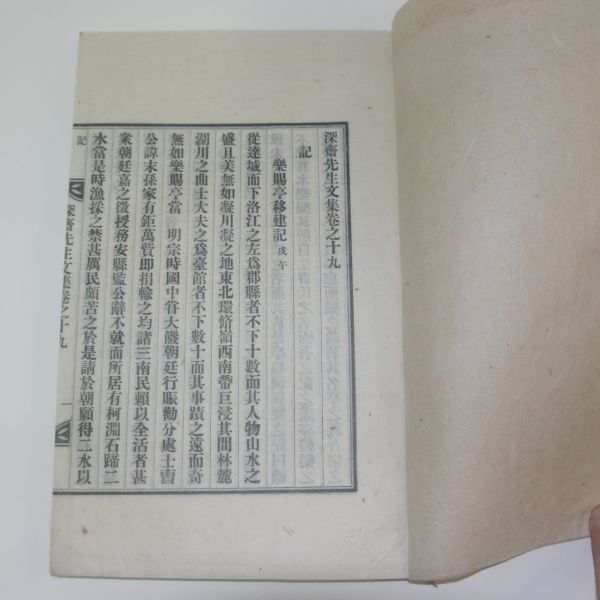 深齋先生文集卷之十九
記
樂賜亭移建記 戊午
從達城而下洛江之左爲郡縣者不下十數而其人物山水之
盛且美無如凝川凝之地東北環脩嶺西南帶巨浸其間林麓
湖川之曲士大夫之爲臺館者不下數十而其事蹟之遠而奇
無如樂賜亭當 明宗時國中甞大饑朝廷行賑勸分處士曺
公諱末孫家有鉅萬貲卽捐輸之均諸三南民賴以全活者甚
衆朝廷嘉之徵授務安縣監公辭不就而所居有柯淵石蹄二
水當是時漁採之禁甚厲民頗苦之於是請於朝願得二水以
記
深齋先生文集卷之十九
一